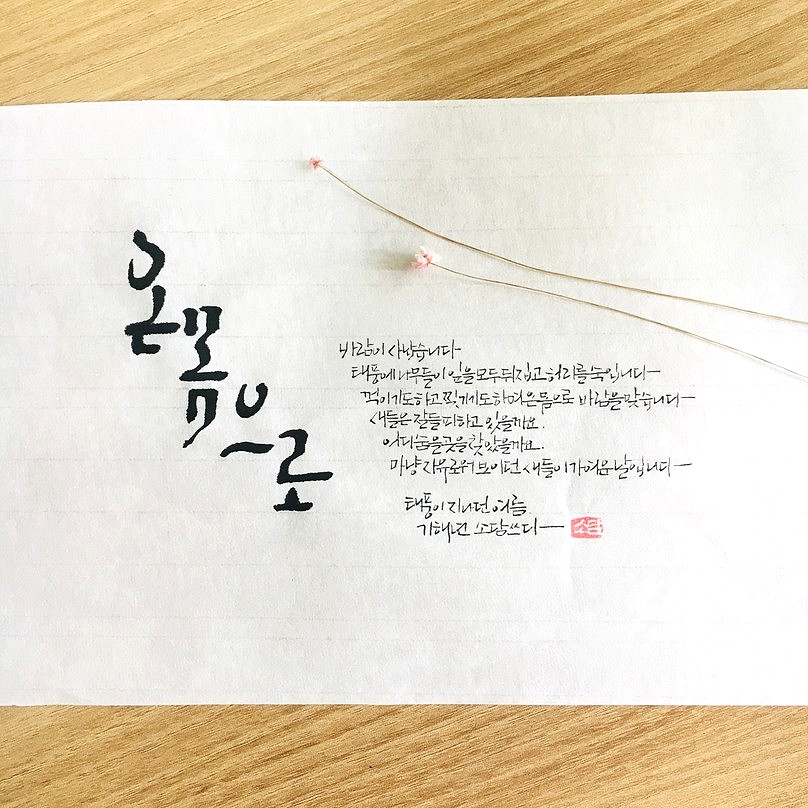 온몸으로
바람이 사납습니다
태풍에 나무들이 잎을 모두 뒤집고 허리를 숙입니다
꺽이기도하고 찢기기도하며 온 몸으로 바람을 맞습니다
새들은 잘들 피하고 있을까요.
어디 숨을 곳을 찾았을까요.
마냥 자유로워 보이던 새들이 가여운 날입니다
태풍이 지나던 여름
기해년 소담쓰다
소담